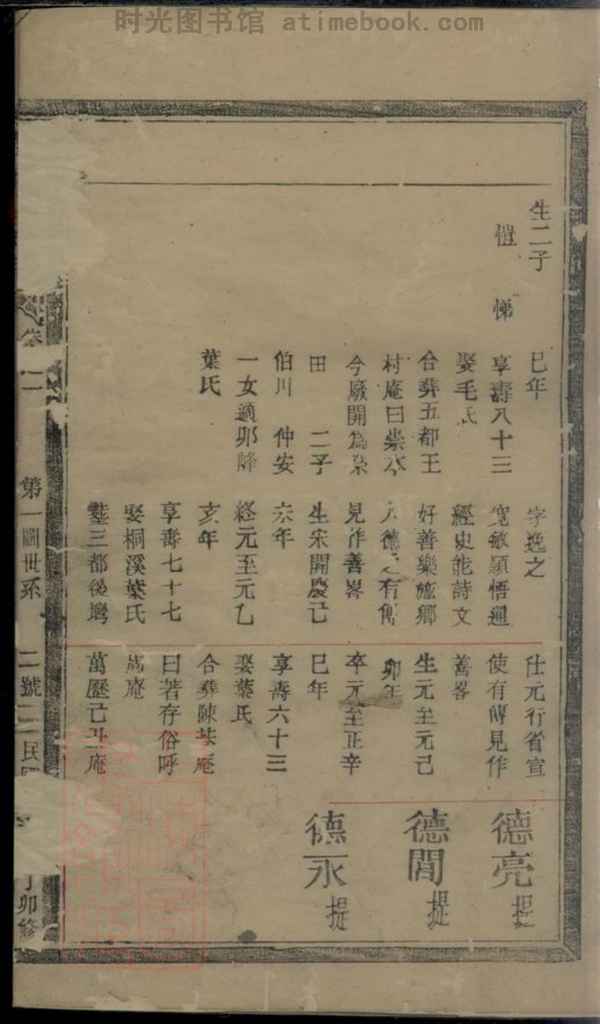 时光图书馆 atimebook.com
生二子
愷 悌
巳年
享壽八十三
娶毛氏
合葬五都王
村庵曰柴
今廢開為
田 二子
伯川 仲安
一女適卯峰
葉氏
字逸之
寬敏穎悟通
經史能詩文
好善樂施鄉
人德之有傳
見作善畧
生宋開慶己
未年
終元至元乙
亥年
享壽七十七
娶桐溪葉氏
塟三都後塆
仕元行省宣
使有傳見作
善畧
生元至元己
卯年
卒元至正辛
巳年
享壽六十三
娶葉氏
合葬陳
曰著存俗呼
萬庵
萬歷己丑庵
德亮 提
德閏 提
德永 提
卷二
第一圖世系
二號
民國
丁卯修